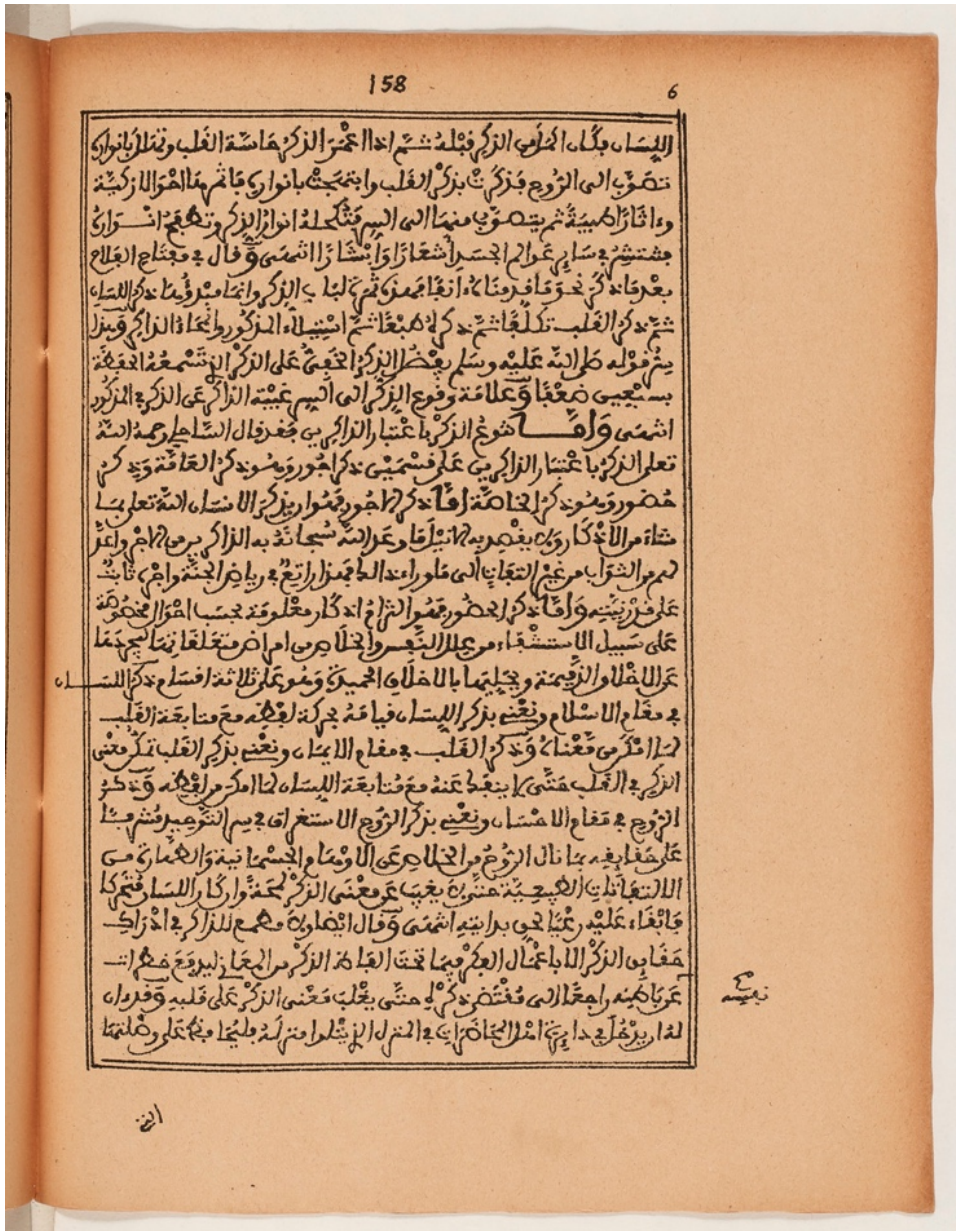 158
6
اللسان بكان الذكر قبله ثم اذا اعمى الذكر حاسة القلب وتملا بانواره
تصوب الى الروح فذكرت بذكر القلب وابتهجت بانواره فاثمرها احوالا زكية
وءاثارا طيبة ثم يتصوب منها الى السر فتكحله انوار الذكر وتطبع انواره
فتنتشر في ساير عوالم الجسد اشعارا وابشارا انتهى وقال في مفتاح الفلاح
بعد ما ذكر نحو ما قدمناه ءانفا لباب الذكر وانما مبدؤها ذكر اللسان
ثم ذكر القلب تكلفا ثم ذكره طبعا ثم استيلاء المذكور وانمحاء الذاكر وهذا
سر قوله صلى الله عليه وسلم يفضل الذكر الخفي على الذكر الذي تسمعه الحفظة
بسبعين ضعفا وعلامة وقوع الذكر الى السر غيبة الذاكر عن الذكر في المذكور
انتهى وامـا تنوع الذكر باعتبار الذاكرين فقد قال الساحلي رحمه الله
تعلى الذكر باعتبار الذاكرين على قسمين ذكر اجور وهو ذكر العامة وذكر
حضور وهو ذكر الخاصة اما ذكر الاجور فهو ان يذكر الانسان الله تعلى بما
شاء من الاذكار ولا يقصد به الا نيل ما وعد الله سبحانه به الذاكرين من الاجر واعد
لهم من الثواب من غير التفات الى ما وراء ذلك فهذا راتع في رياض الجنة واجره ثابت
على قدر نيته واما ذكر الحضور فهو التزام اذكار معلومة بحسب احوال مخصوصة
على سبيل الاستشفاء من علل النفس والخلاص من امراض متعلقاتها ليجردها
عن الاخلاق الذميمة ويحليها بالاخلاق الحميدة وهو على ثلاثة اقسام ذكر اللسـان
في مقام الاسلام ونعني بذكر اللسان قيامه بحركة لفظه مع متابعة القلب
لما امكن من معناه وذكر القلب في مقام الايمان ونعني بذكر القلب تمكن معنى
الذكر في القلب حتى لا ينفك عنه مع متابعة اللسان لما امكن من لفظه وذكر
الروح في مقام الاحسان ونعني بذكر الروح الاستغراق في سر التوحيد مشرفا
على حقايقه بما نال الروح من الخلاص عن الاوهام الجسمانية والطهارة من
الالتفاتات الطبيعية حتى لا يغيب عن معنى الذكر لمحة وان كان اللسان متحركا
فابقاء عليه رعيا لحق بدايته انتهى وقال ايضا ولا مطمع للذاكر في ادراك
حقايق الذكر الا باعمال الفكر فيما تحت الفاظ الذكر من المعاني ليدفع خطرات
عن باطنه راجعا الى مقتضى ذكره حتى يغلب معنى الذكر على قلبه وقد ءان
له ان يدخل في دايرة اهل المحاضرات في المنزل الذي يتلوا منزله
نفيسه